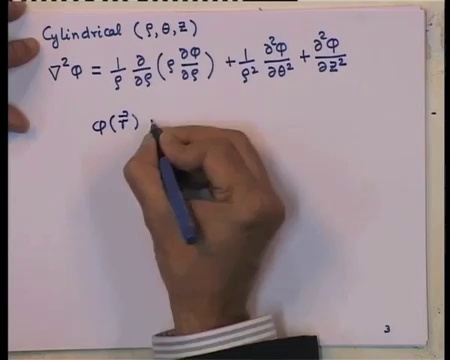 Cylindrical (ρ, θ, Z)
∇²φ = 1/ρ ∂/∂ρ (ρ ∂φ/∂ρ) + 1/ρ² ∂²φ/∂θ² + ∂²φ/∂z²
φ(r⃗)
3